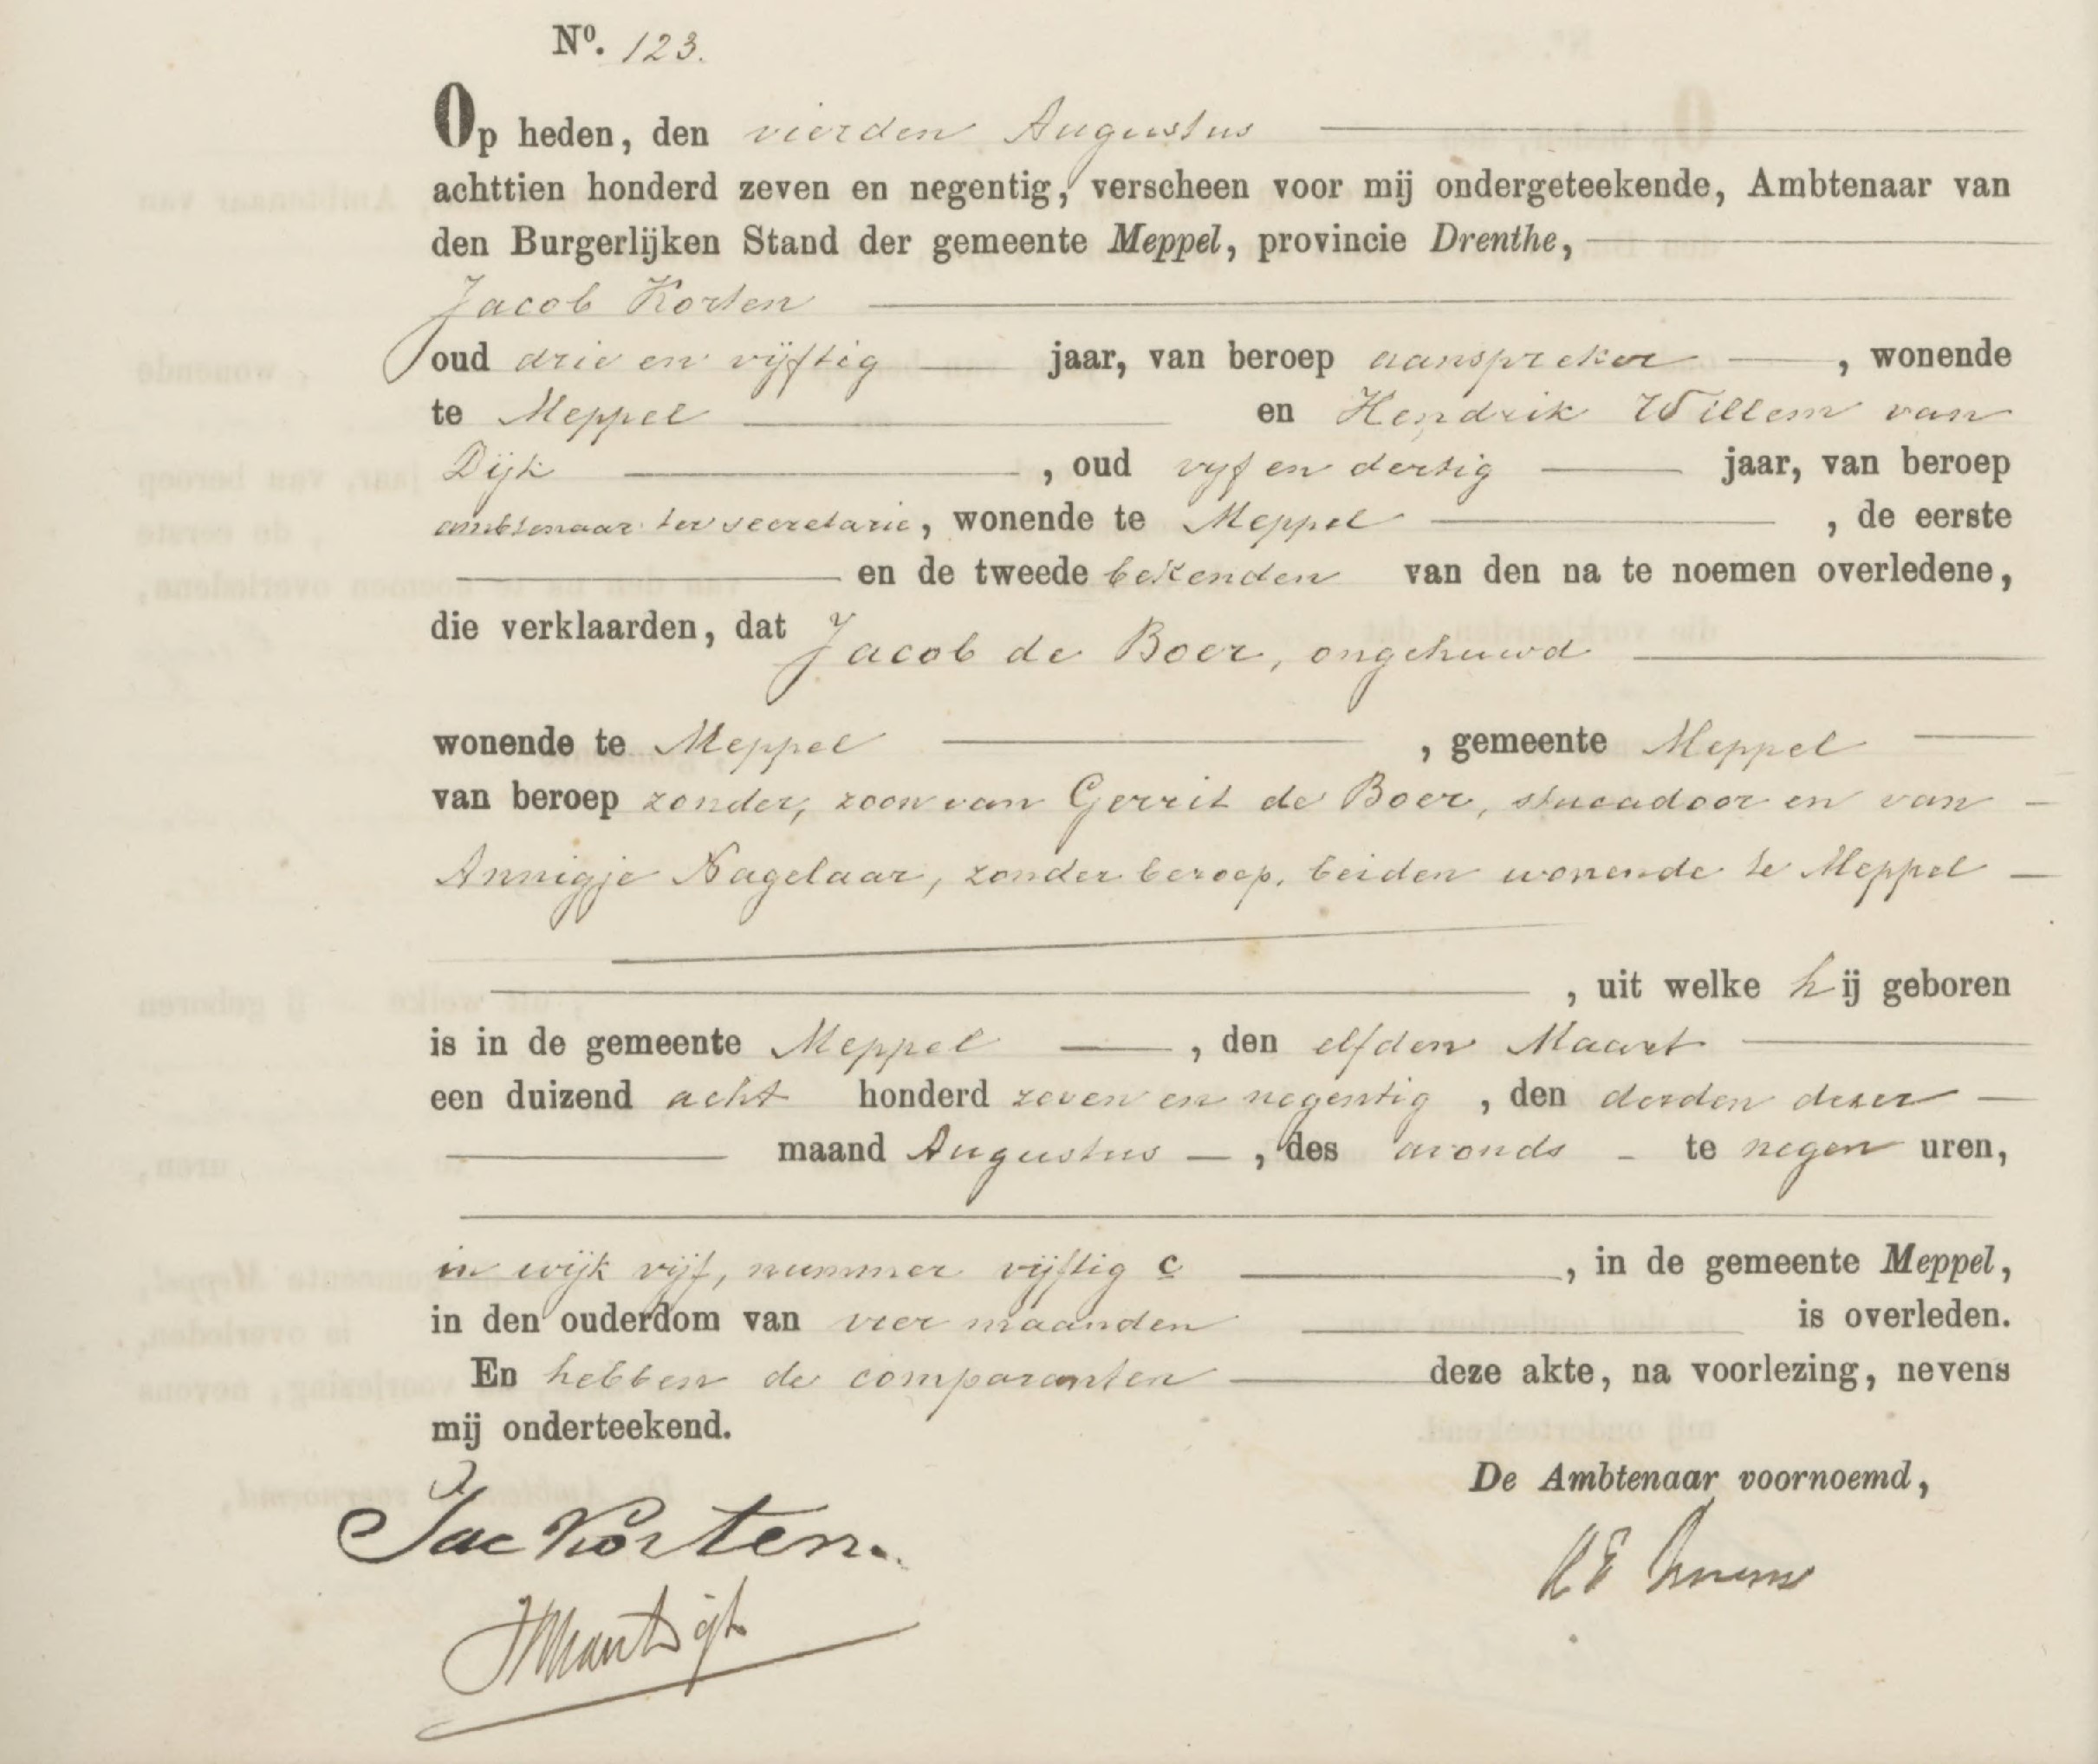 Nº. 123.
Op heden, den vierden Augustus
achttien honderd zeven en negentig, verscheen voor mij ondergeteekende, Ambtenaar van
den Burgerlijken Stand der gemeente Meppel, provincie Drenthe,
Jacob Korten
oud drie en vijftig jaar, van beroep aanspreker, wonende
te Meppel en Hendrik Willem van
Dijk, oud vyf en dertig jaar, van beroep
ambtenaar ter secretarie, wonende te Meppel, de eerste
en de tweede bekenden van den na te noemen overledene,
die verklaarden, dat Jacob de Boer, ongehuwd
wonende te Meppel, gemeente Meppel
van beroep zonder, zoon van Gerrit de Boer, stucadoor en van
Annigje Nagelaar, zonder beroep, beiden wonende te Meppel
, uit welke hij geboren
is in de gemeente Meppel, den elfden Maart
een duizend acht honderd zeven en negentig, den derden dezer
maand Augustus, des avonds te negen uren,
in wijk vijf, nummer vijftig c, in de gemeente Meppel,
in den ouderdom van vier maanden is overleden.
En hebben de comparanten deze akte, na voorlezing, nevens
mij onderteekend.
De Ambtenaar voornoemd,
Jac Korten.
HWvanDijk